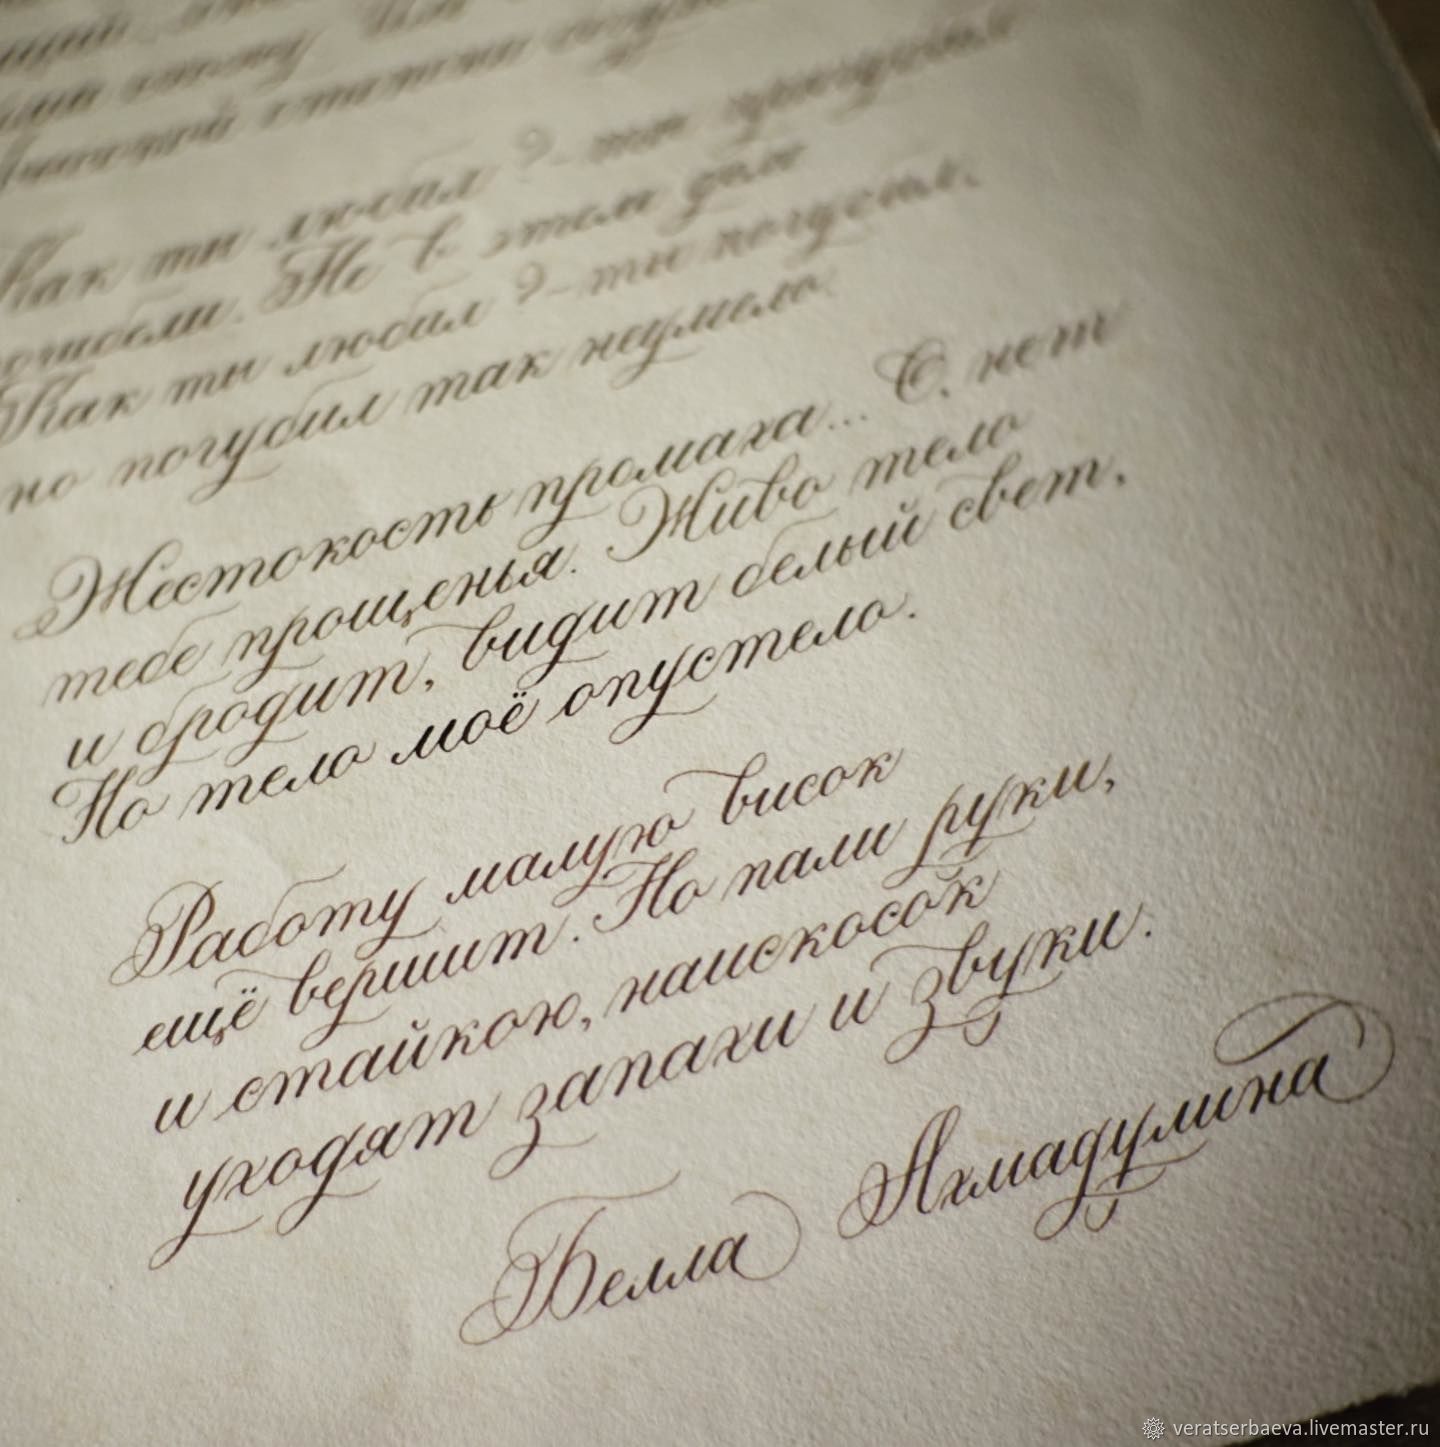 Как ты любил? – ты пригубил
погибели. Не в этом дело
Как ты любил? – ты погубил,
но погубил так неумело.
Жестокость промаха... О, нет
тебе прощенья. Живо тело
и бродит, видит белый свет,
Но тело моё опустело.
Работу малую висок
ещё вершит. Но пали руки,
и стайкою, наискосок
уходят запахи и звуки.
Белла Ахмадулина
veratserbaeva.livemaster.ru